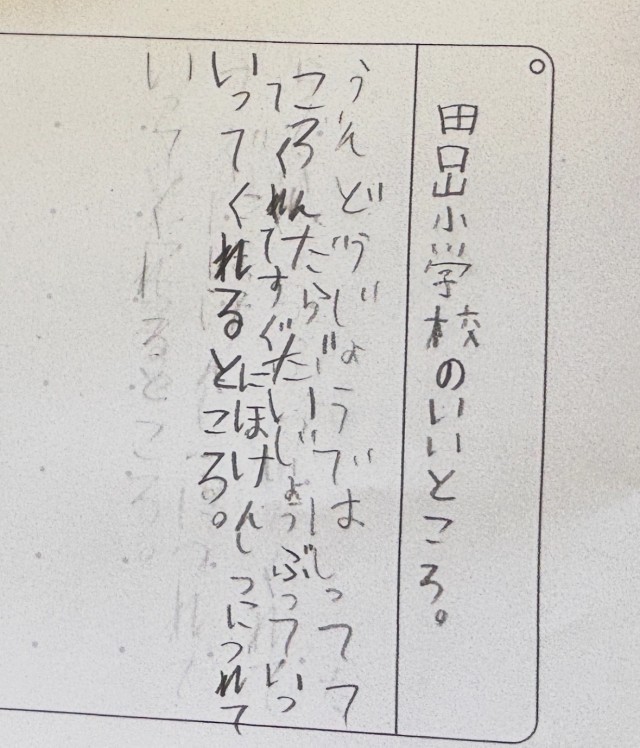 田口山小学校のいいところ。
うんどうじょうでは
しってて
ころんたらだいじょうぶっていっ
てくれてすぐにほけんしつにつれて
いってくれるところ。